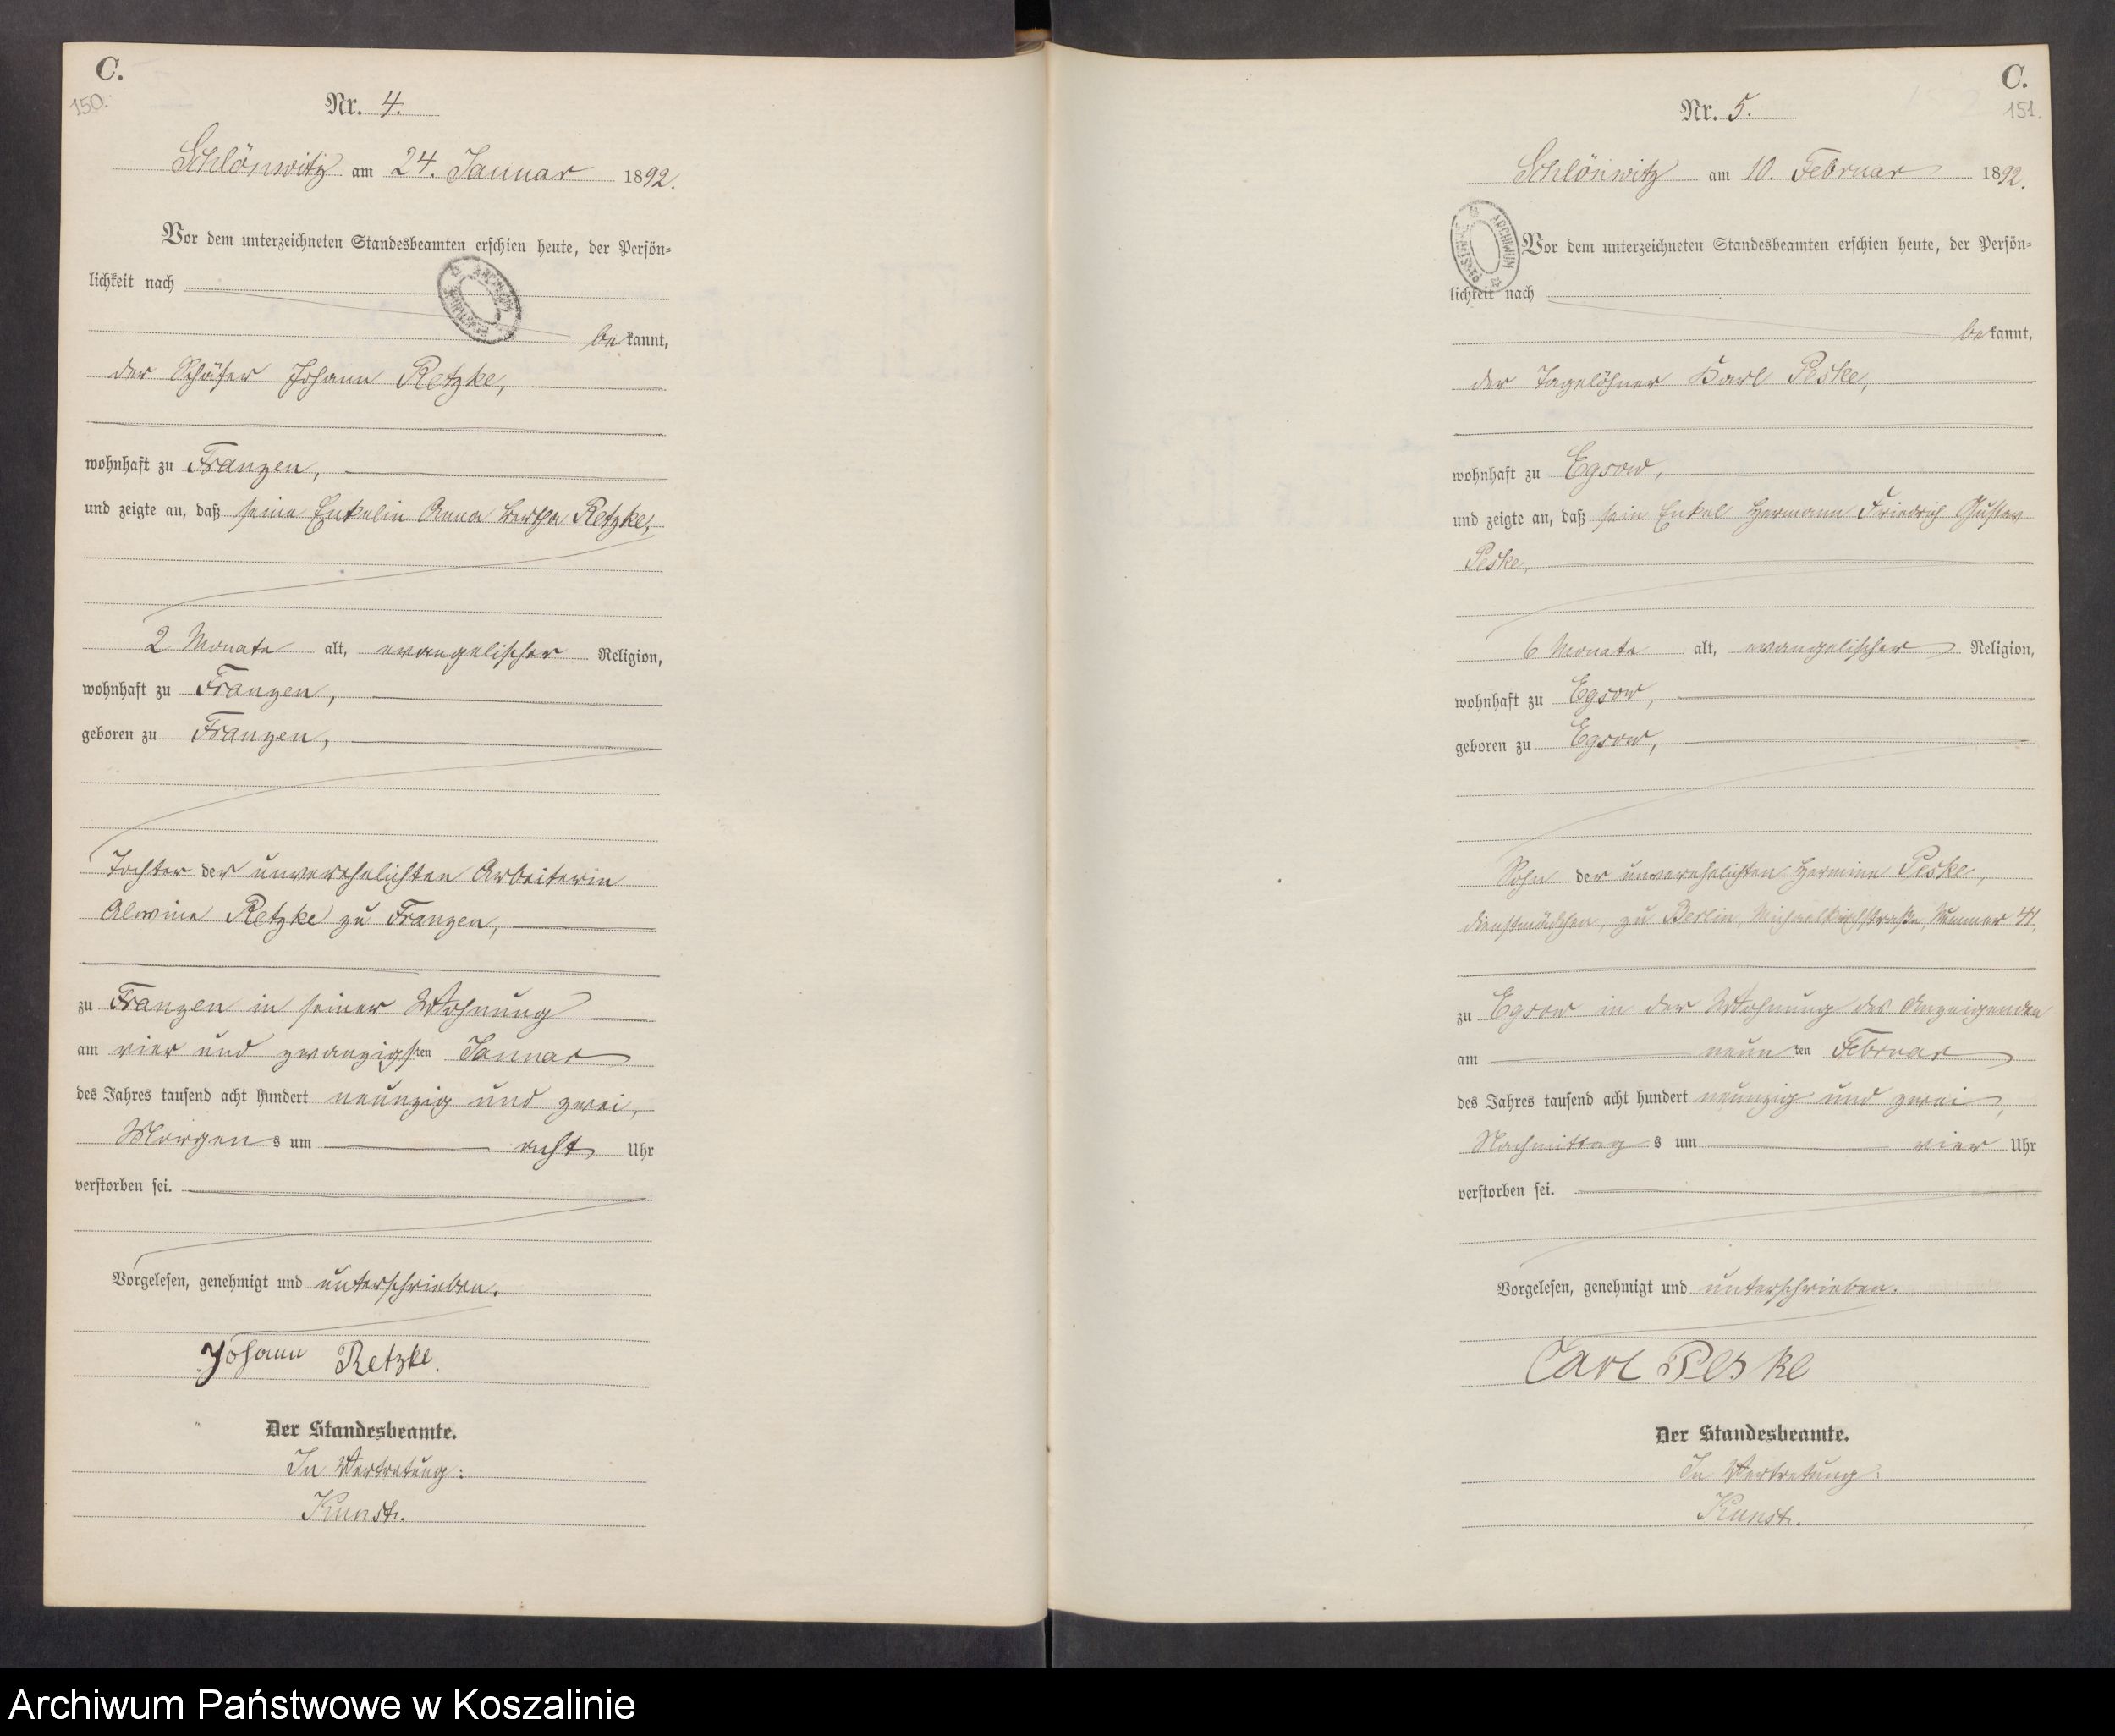 C.
150.
Nr. 4.
Schlönwitz am 24. Januar 1892.
Vor dem unterzeichneten Standesbeamten erschien heute, der Persön-
lichkeit nach
bekannt,
der Schäfer Johann Retzke,
wohnhaft zu Franzen,
und zeigte an, daß seine Enkelin Anna Bertha Retzke,
2 Monate alt, evangelischer Religion,
wohnhaft zu Franzen,
geboren zu Franzen,
Tochter der unverehelichten Arbeiterin
Alwine Retzke zu Franzen,
zu Franzen in seiner Wohnung
am vier und zwanzigsten Januar
des Jahres tausend acht hundert neunzig und zwei,
Morgens um acht Uhr
verstorben sei.
Vorgelesen, genehmigt und unterschrieben.
Johann Retzke.
Der Standesbeamte.
In Vertretung:
Kunst.
C.
151.
Nr. 5.
Schlönwitz am 10. Februar 1892.
ARCHIWUM
Vor dem unterzeichneten Standesbeamten erschien heute, der Persön-
lichkeit nach
bekannt,
der Tagelöhner Karl Peske,
wohnhaft zu Egsow,
und zeigte an, daß sein Enkel Hermann Friedrich Gustav
Peske,
6 Monate alt, evangelischer Religion,
wohnhaft zu Egsow,
geboren zu Egsow,
Sohn der unverehelichten Hermine Peske,
Dienstmädchen, zu Berlin, Michaelkirchstraße, Nummer 41,
zu Egsow in der Wohnung des Anzeigenden
am neunten Februar
des Jahres tausend acht hundert neunzig und zwei,
Nachmittags um vier Uhr
verstorben sei.
Vorgelesen, genehmigt und unterschrieben.
Carl Peske
Der Standesbeamte.
In Vertretung:
Kunst.
Archiwum Państwowe w Koszalinie